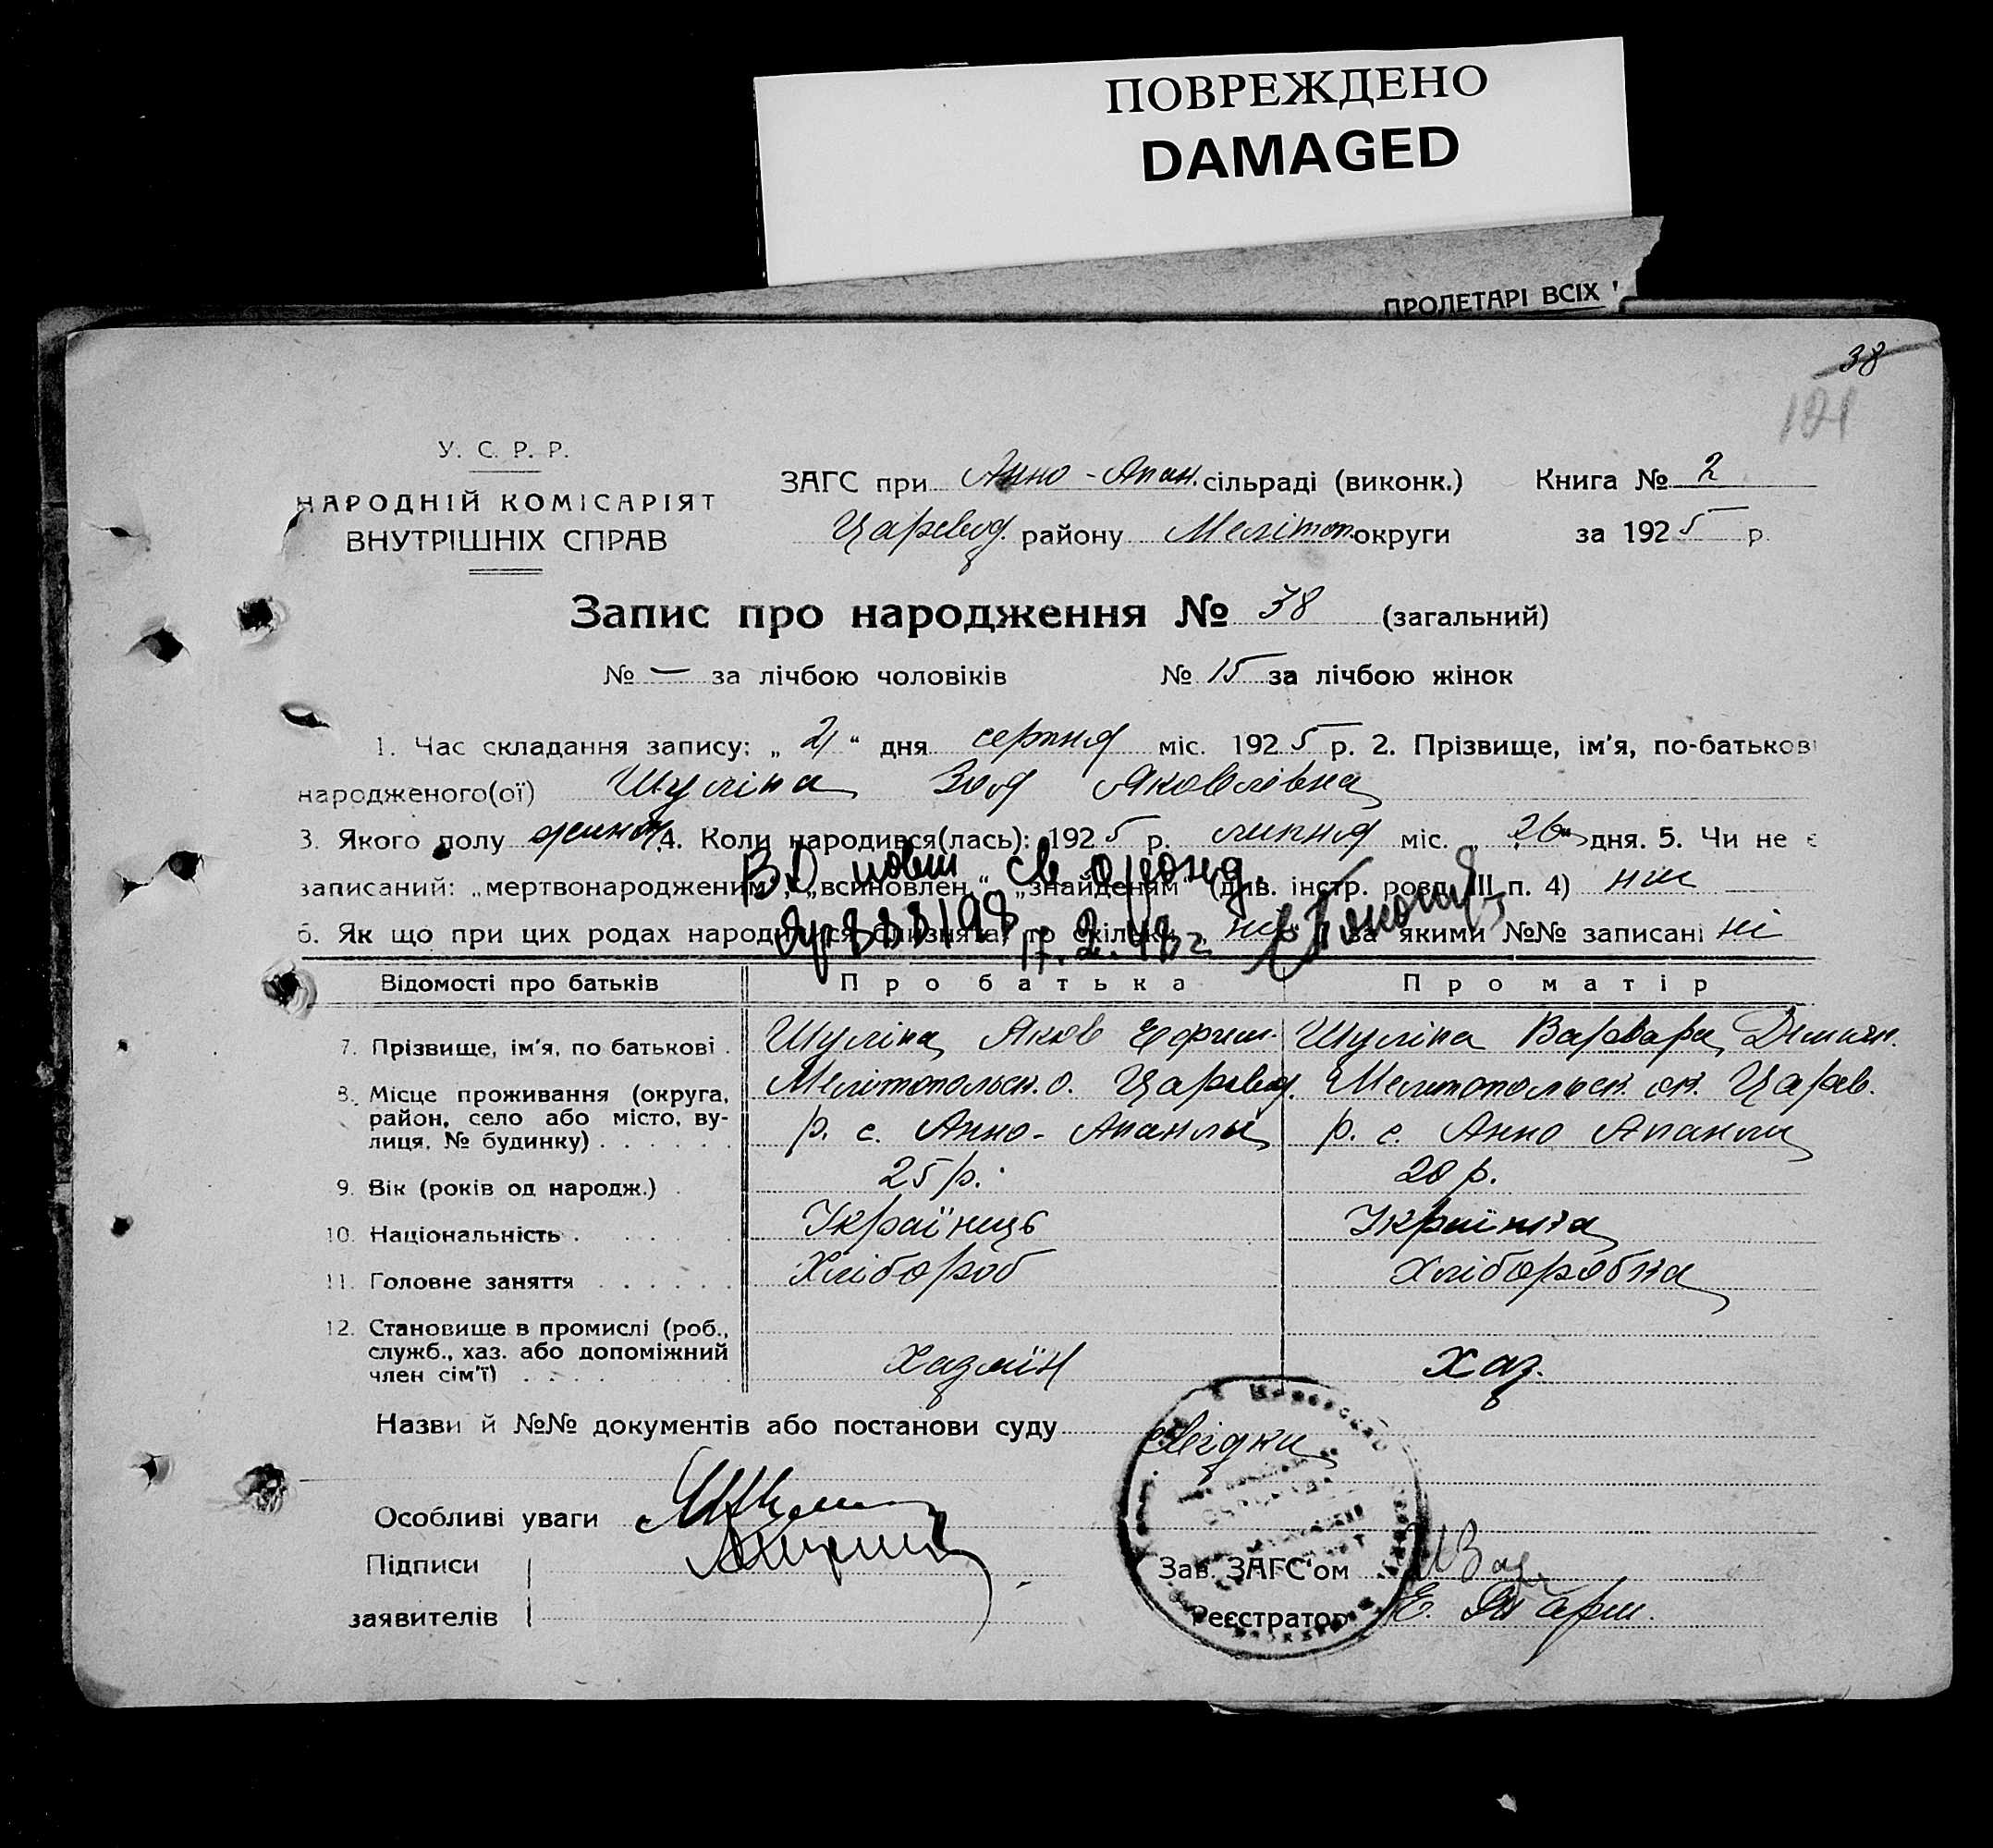 ПОВРЕЖДЕНО
DAMAGED
ПРОЛЕТАРІ ВСІХ
38
У. С. Р. Р.
НАРОДНІЙ КОМІСАРІЯТ
ВНУТРІШНІХ СПРАВ
ЗАГС при Анно-Апан. сільраді (виконк.) Книга № 2
Царевод. району Мелітоп. округи за 1925 р.
Запис про народження № 38 (загальний)
№ — за лічбою чоловіків № 15 за лічбою жінок
1. Час складання запису: „ 21 “ дня серпня міс. 1925 р. 2. Прізвище, ім'я, по-батькові
народженого(ої) Шуліна Зоя Яковлівна
3. Якого полу 4. Коли народився(лась): 1925 р. липня міс. „ 26 “ дня. 5. Чи не є
записаний: „мертвонародженим“, „всиновлен.“ „знайденим“ (див. інстр. розд. III п. 4)
ВД повт св о рожд.
6. Як що при цих родах народилися близнята, то скільки „ ні “ і за якими №№ записані ні
Відомості про батьків Про батька Про матір
7. Прізвище, ім'я, по батькові . Шуліна Яков Ефим. Шуліна Варвара Демьян.
8. Місце проживання (округа, район, село або місто, вулиця, № будинку) . . . . . . Мелітопольск. о. Царевод. Мелитопольск. ок. Царев.
р. с. Анно-Апанли р. с. Анно Апанли
9. Вік (років од народж.) . 25 р. 20 р.
10. Національність . . . . . Українець Українка
11. Головне заняття . . . . . . Хлібороб Хліборобка
12. Становище в промислі (роб., служб., хаз. або допоміжний член сім'ї) . . . . Хазяїн Хаз.
Назви й №№ документів або постанови суду Свідки
Особливі уваги
Підписи
заявителів
Зав. ЗАГС'ом
Реєстратор Е.